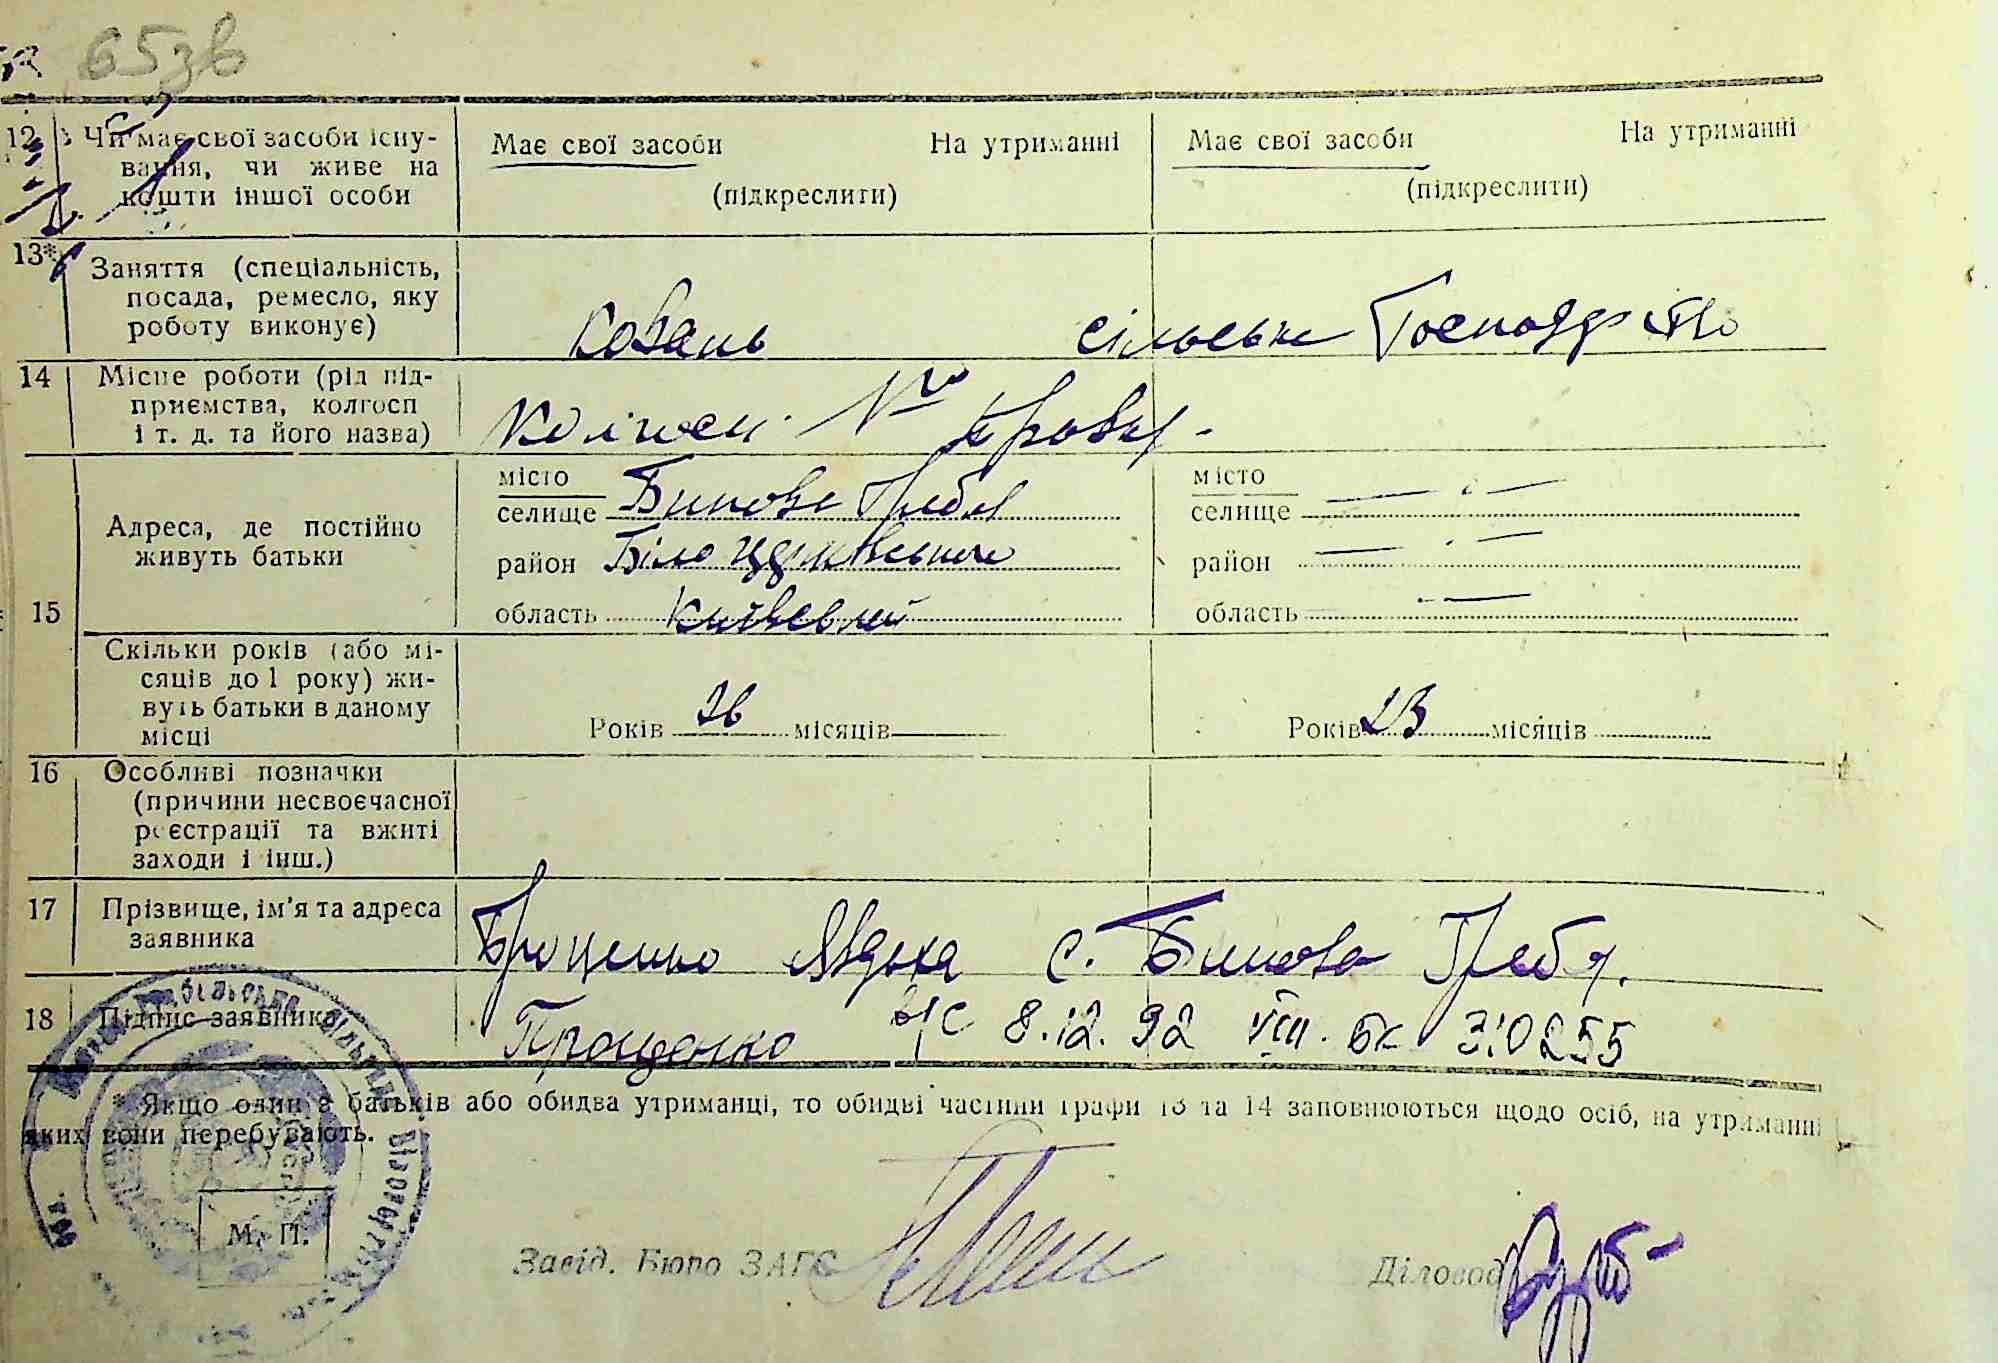 65зв
12 Чи має свої засоби існу-
вання, чи живе на
кошти іншої особи
Має свої засоби На утриманні
(підкреслити)
Має свої засоби На утриманні
(підкреслити)
13* Заняття (спеціальність,
посада, ремесло, яку
роботу виконує)
коваль
сільське Господарство
14 Місце роботи (рід під-
приємства, колгосп
і т. д. та його назва)
Колгосп
15 Адреса, де постійно
живуть батьки
місто
селище Бикова Гребля
район Білоцерківського
область Київської
місто
селище — " —
район — " —
область — " —
Скільки років (або мі-
сяців до 1 року) жи-
вуть батьки в даному
місці
Років 36 місяців
Років 23 місяців
16 Особливі позначки
(причини несвоєчасної
реєстрації та вжиті
заходи і інш.)
17 Прізвище, ім'я та адреса
заявника
Проценко Явдоха с. Бикова Гребля.
18 Підпис заявника
Проценко
8.12.92 VIII. БК 310255
* Якщо один з батьків або обидва утриманці, то обидві частини графи 13 та 14 заповнюються щодо осіб, на утриманні
яких вони перебувають.
М. П.
Завід. Бюро ЗАГС
Діловод